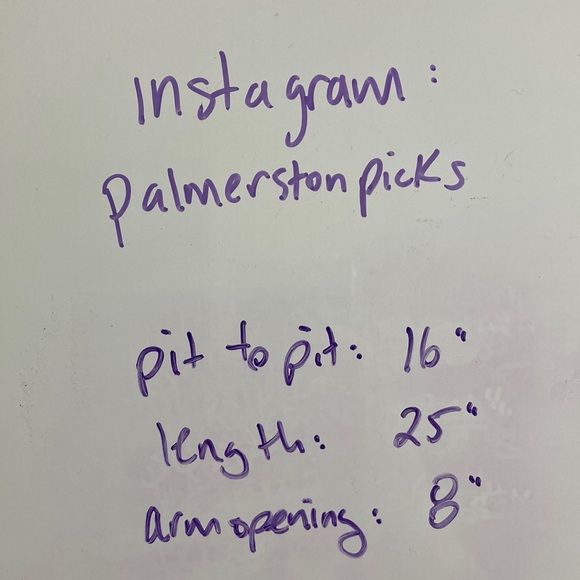 Instagram:
Palmerstonpicks
pit to pit: 16"
length: 25"
arm opening: 8"